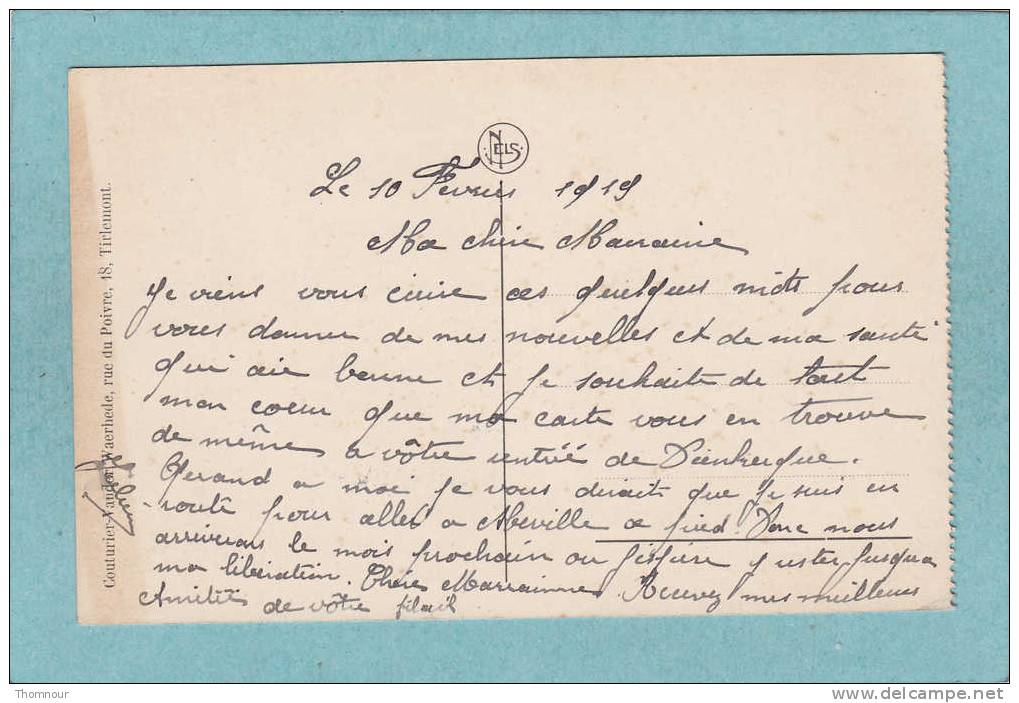 NELS
Le 10 Fevrier 1919
Ma chère Marraine
Je viens vous écrire ces quelques mots pour
vous donner de mes nouvelles et de ma santé
qui aie bonne et je souhaite de tout
mon coeur que ma carte vous en trouve
de même a vôtre rentréé de Dunkerque.
Quand a moi je vous dirait que je suis en
route pour aller a Abeville a pied. Donc nous
arriverons le mois prochain ou j'espère y rester jusqua
ma libération. Chere Marrainne Recevez mes meilleures
Amitiés de vôtre filail
Couturier-Vanden Waerhede, rue du Poivre, 18, Tirlemont.
Thomnour
delcampe.net